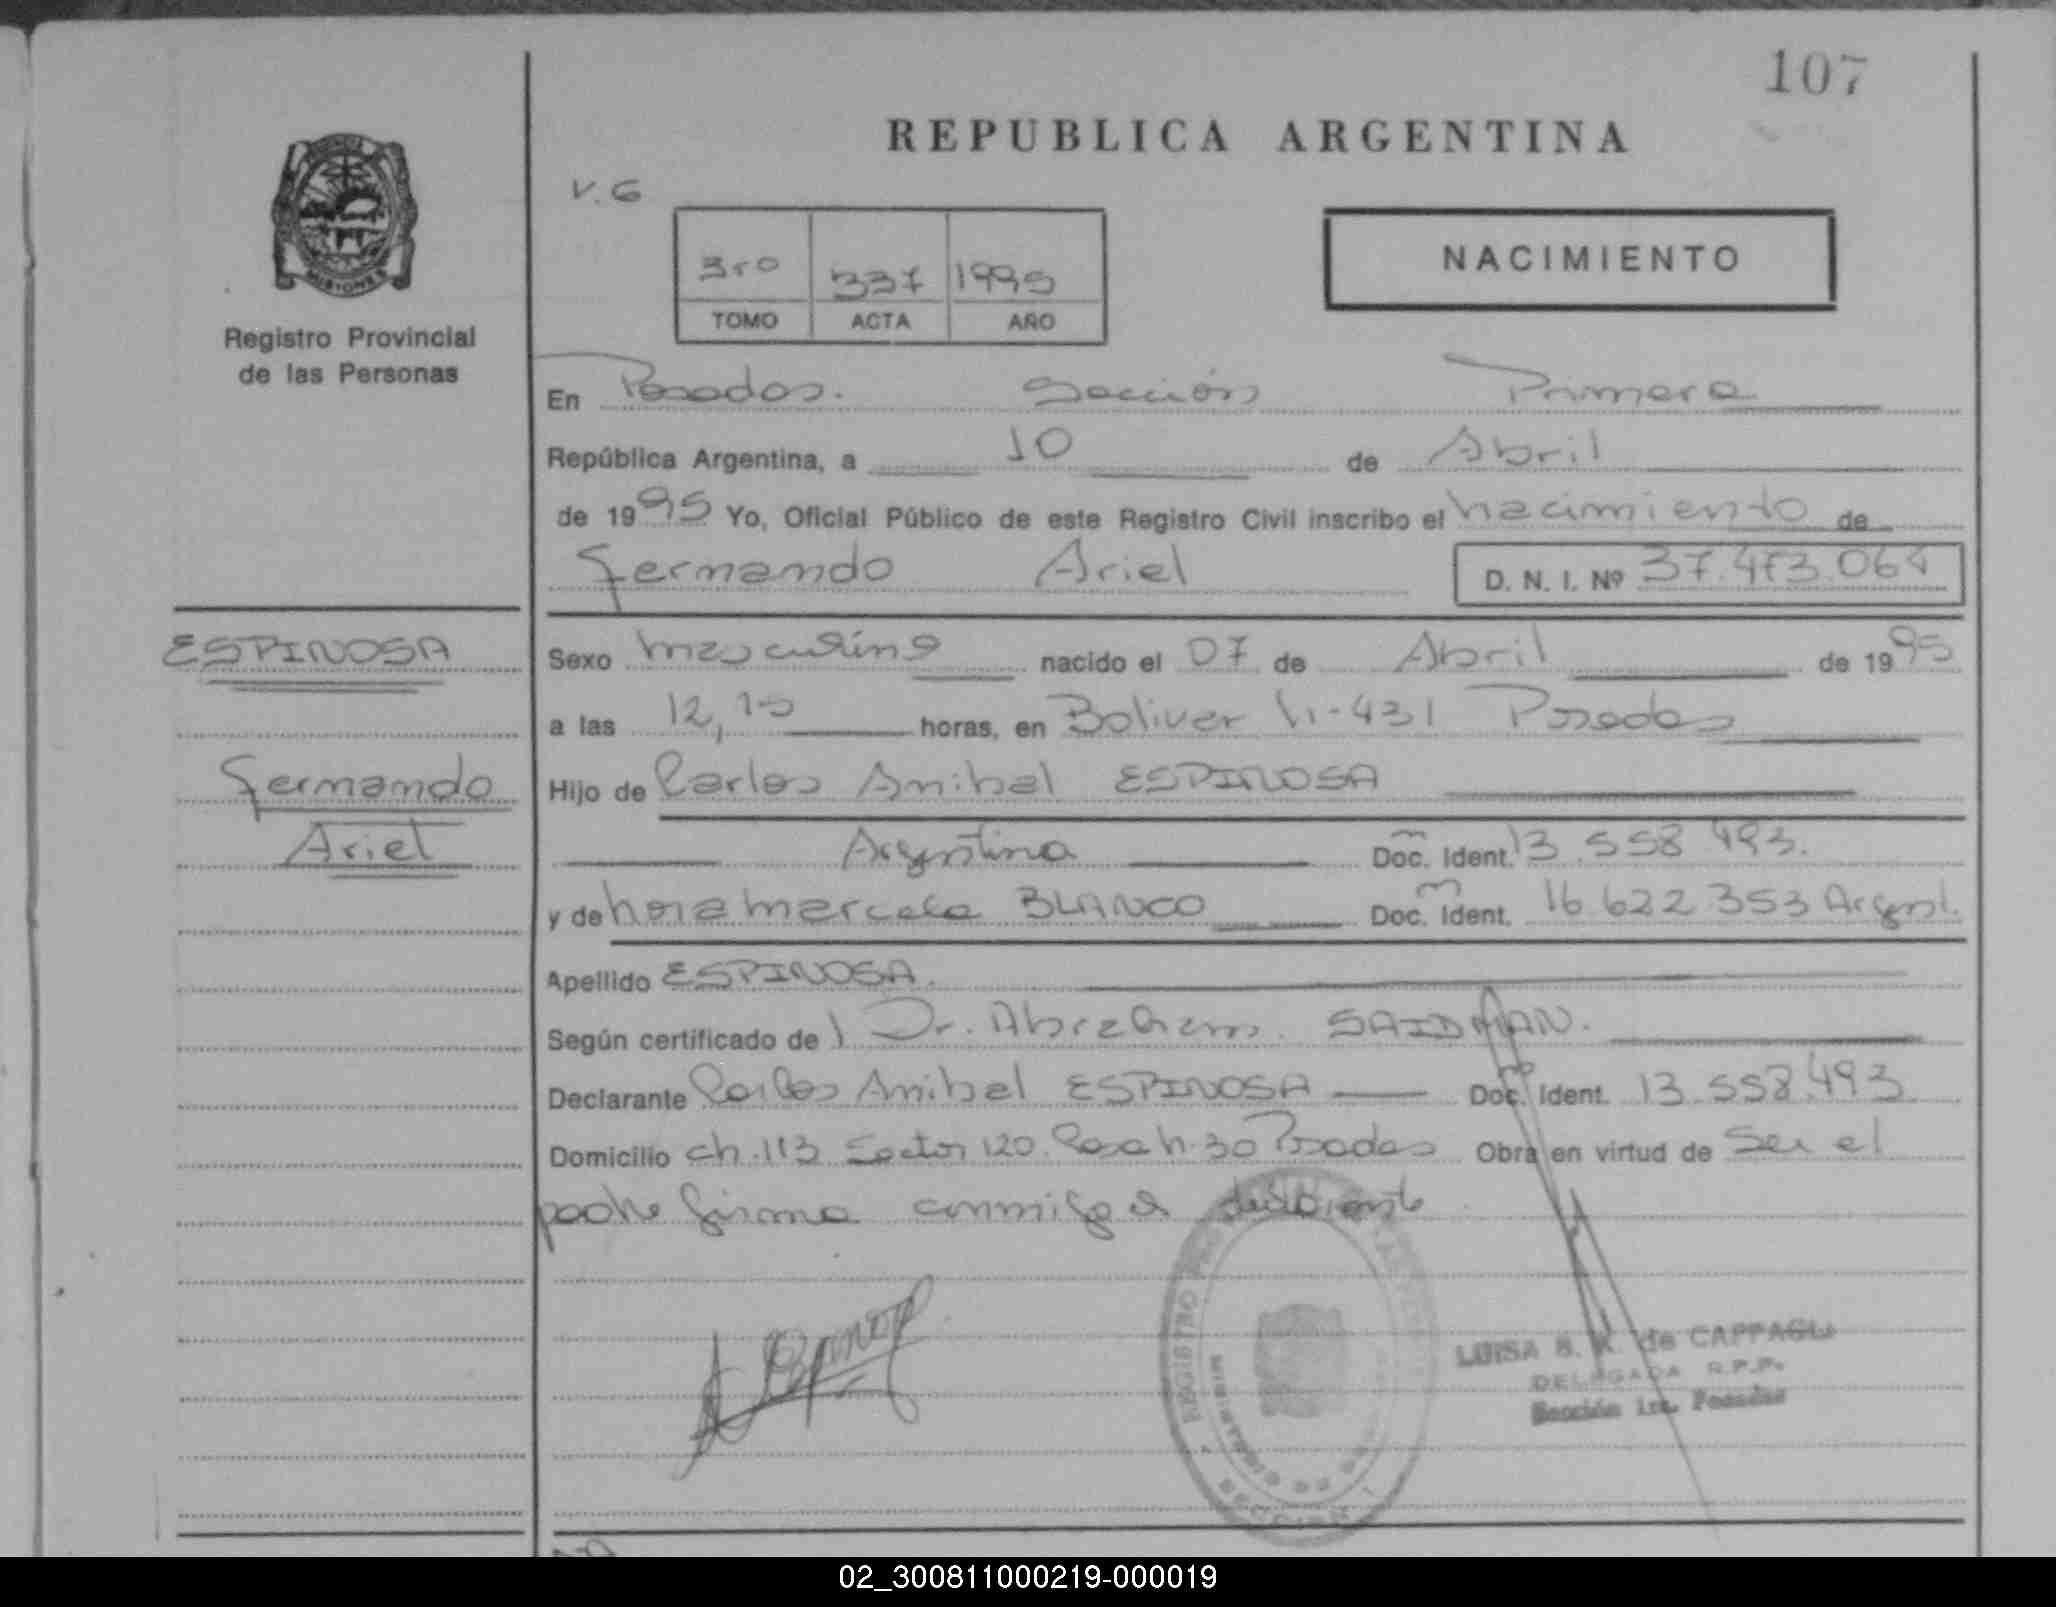 107
REPUBLICA ARGENTINA
V. G
NACIMIENTO
3ro 337 1995
TOMO ACTA AÑO
MISIONES
Registro Provincial
de las Personas
En Posadas. Sección Primera
República Argentina, a 10 de Abril
de 1995 Yo, Oficial Público de este Registro Civil inscribo el nacimiento de
Fernando Ariel D. N. I. Nº 37.473.064
ESPINOSA
Fernando
Ariel
Sexo masculino nacido el 07 de Abril de 1995
a las 12,15 horas, en Bolivar N-431 Posadas
Hijo de Carlos Anibal ESPINOSA
Argentina Doc. Ident. 13.558.493.
y de Nora Marcela BLANCO Doc. Ident. 16.622.353 Argent.
Apellido ESPINOSA.
Según certificado de l Dr. Abraham SAIDMAN.
Declarante Carlos Anibal ESPINOSA Doc. Ident. 13.558.493
Domicilio ch. 113 Sector 120 Casa N. 30 Posadas Obra en virtud de Ser el
padre firma conmigo el
REGISTRO
MINISTERIO DE
SECCION 1
LUISA B. K. de CAPPAGLI
DELEGADA R.P.P.
Sección 1ra. Posadas
02_300811000219-000019